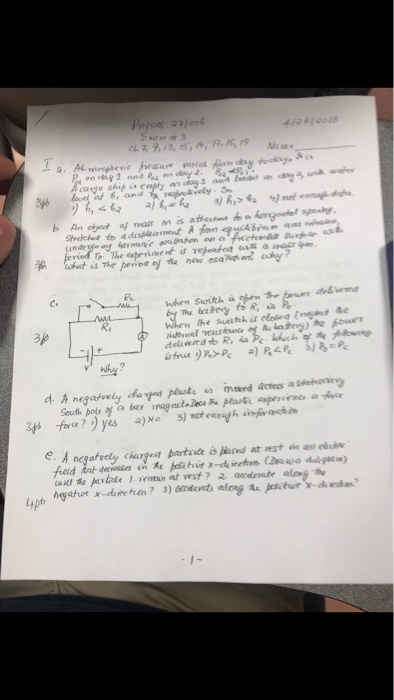 Physics 27/006
4/26/2018
Exam # 3
Ch 7, 9, 13, 15, 16, 17, 18, 19 Name
I a. Atmospheric pressure varies from day to day. It is
P01 on day 1 and P02 on day 2. P02 < P01.
A cargo ship is empty on day 1 and loaded on day 2 with water
level at h1 and h2 respectively. So
3pts 1) h1 < h2 2) h1 = h2 3) h1 > h2 4) not enough data
b An object of mass m is attached to a horizontal spring,
Stretched to a displacement A from equilibrium and released,
undergoing harmonic oscillation on a frictionless surface with
period To. The experiment is repeated with a mass
3pts What is the period of the new oscillation, why?
c. R2
R1
A
- +
3pts
Why?
When switch is open the power delivered
by the battery to R1 is Po
When the switch is closed (neglect the
internal resistance of the battery) the power
delivered to R1 is Pc. Which of the following
is true 1) Po > Pc 2) Po < Pc 3) Po = Pc
d. A negatively charged plastic is moved across a stationary
South pole of a bar magnet. Does the plastic experience a force
3pts force? 1) yes 2) NO 3) not enough information
e. A negatively charged particle is placed at rest in an electric
field that decreases in the positive x-direction (Draw a diagram)
will the particle 1. remain at rest? 2. accelerate along the
4pts negative x-direction? 3) accelerate along the positive x-direction?
- 1 -